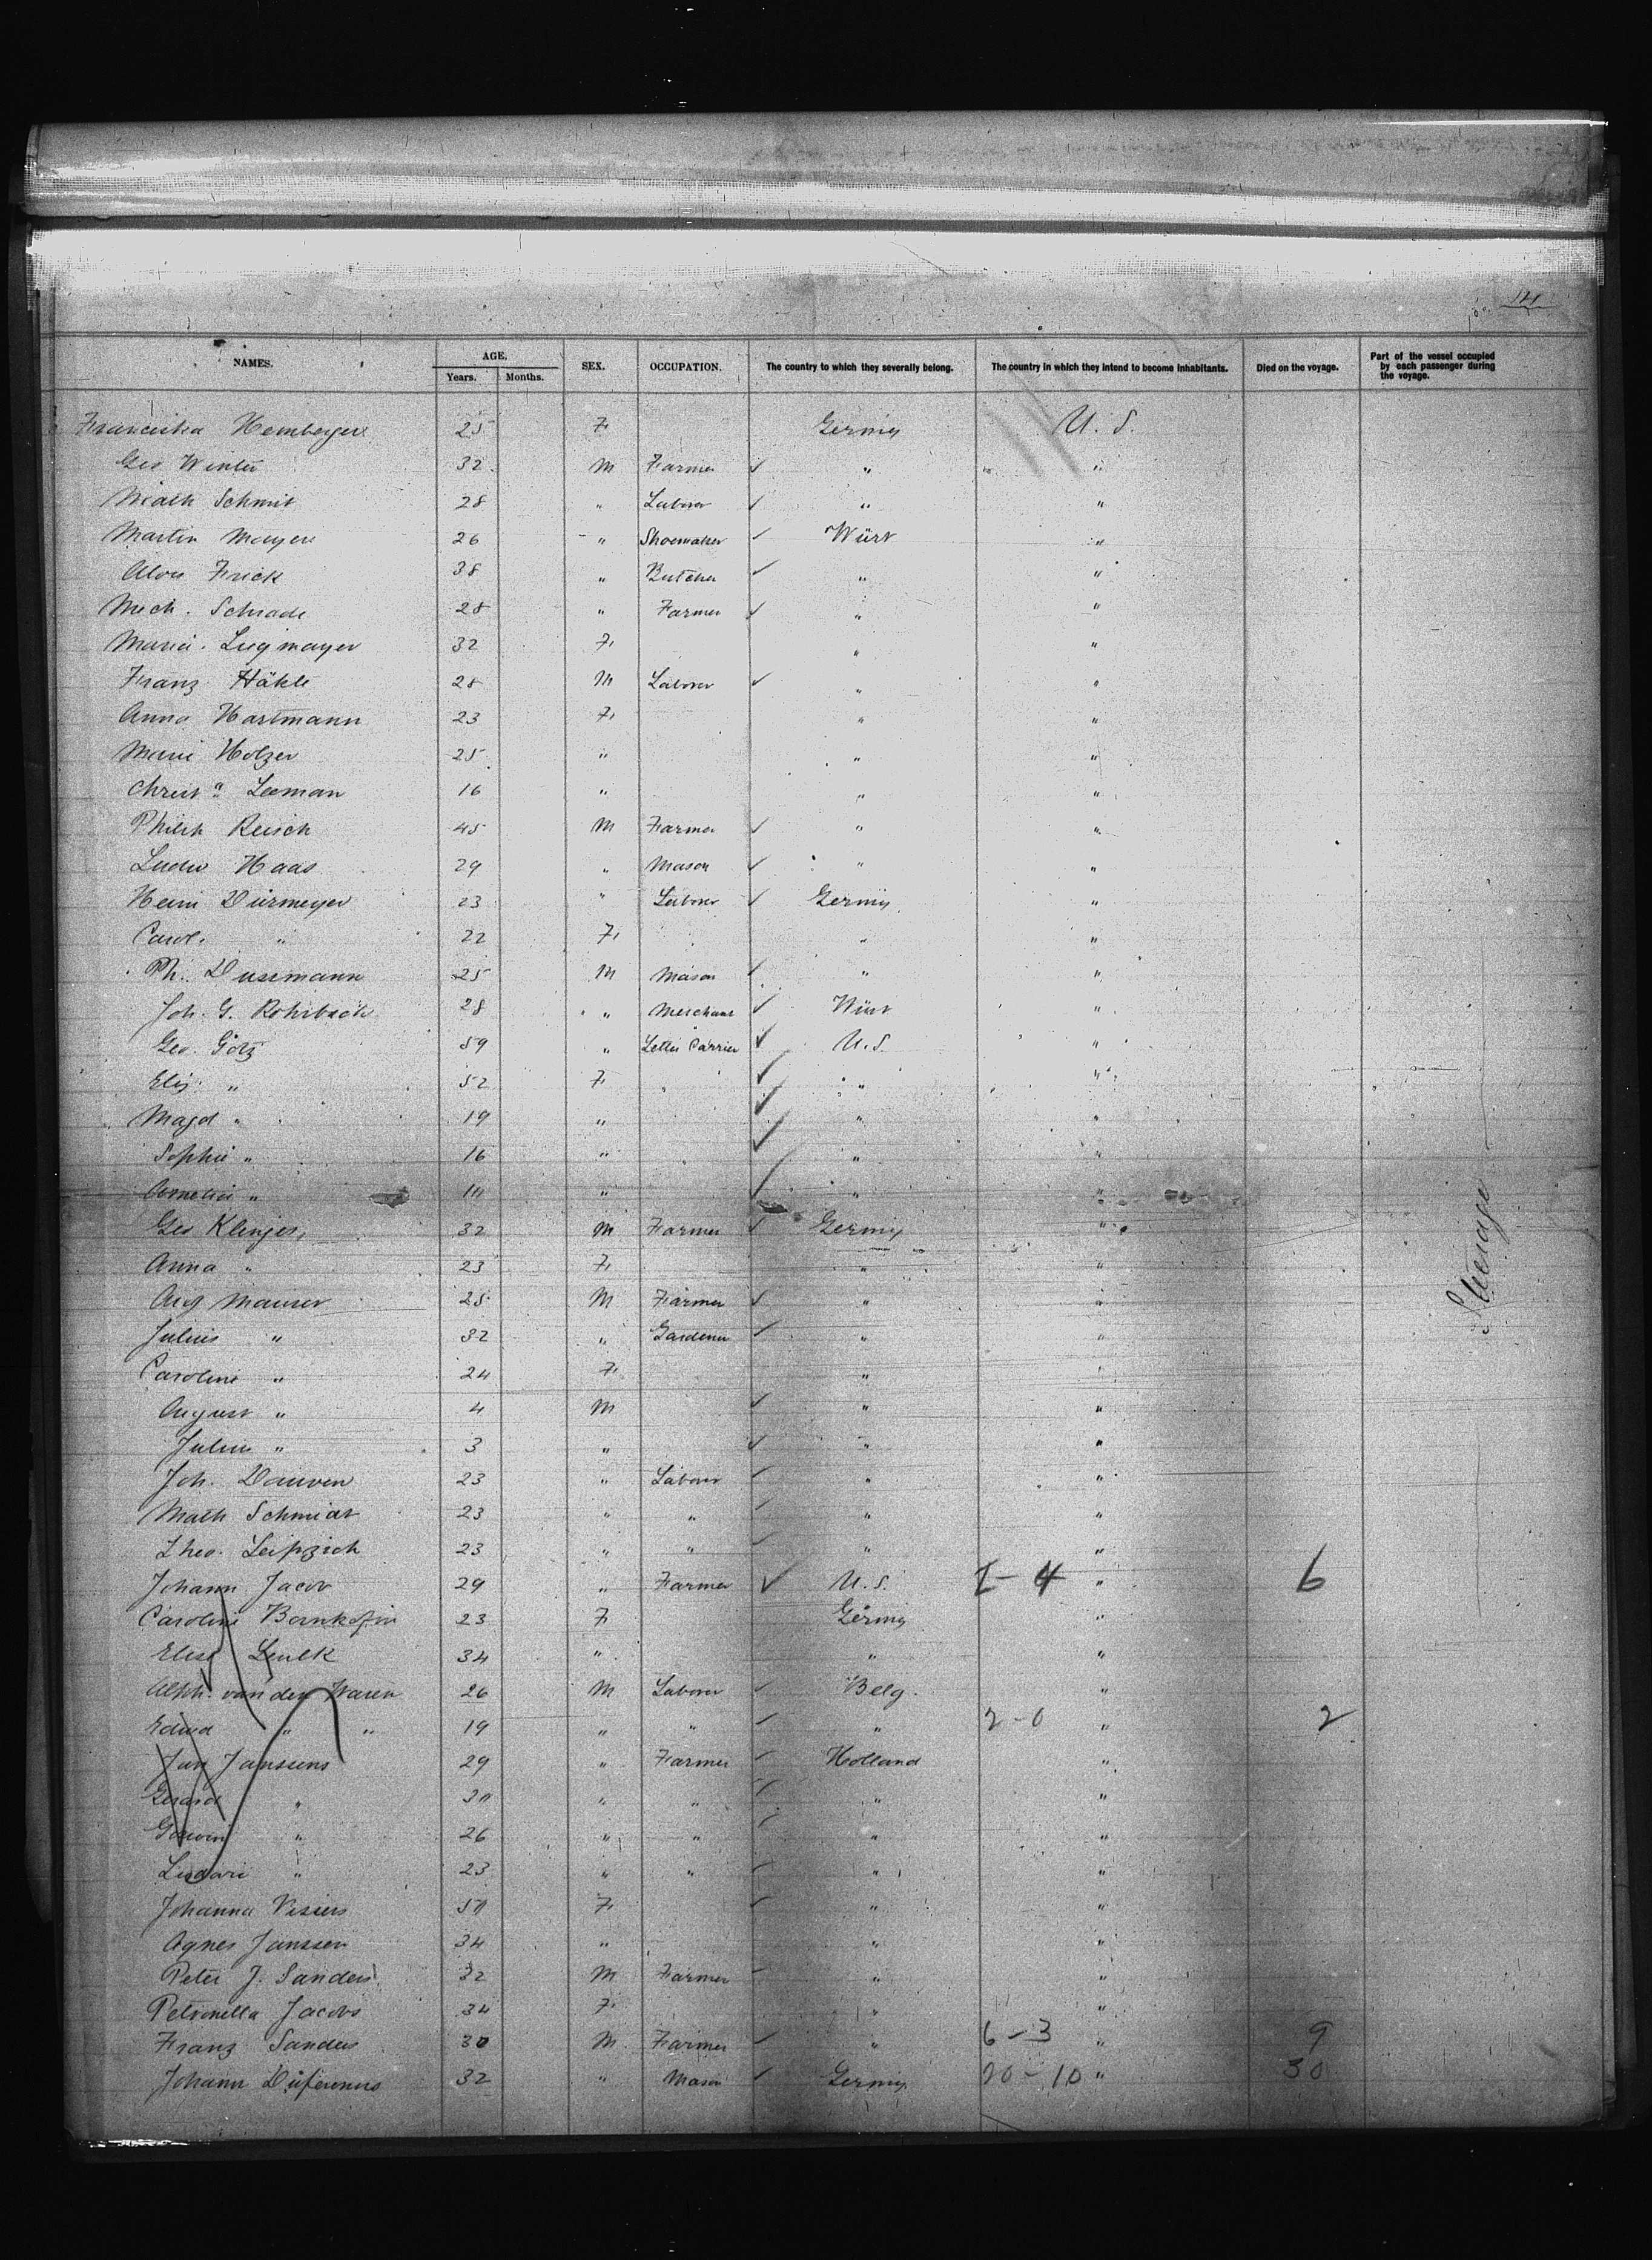 14
NAMES. AGE. SEX. OCCUPATION. The country to which they severally belong. The country in which they intend to become inhabitants. Died on the voyage. Part of the vessel occupied by each passenger during the voyage.
Years. Months.
Franciska Hemberger 25 F Germy U. S.
Geo Winter 32 M Farmer ✓ " "
Math Schmit 28 " Laborer ✓ " "
Martin Mayer 26 " Shoemaker ✓ Würt "
Alois Frick 38 " Butcher ✓ " "
Mich. Schrade 28 " Farmer ✓ " "
Maria Luginayer 32 F " "
Franz Häkle 28 M Laborer ✓ " "
Anna Hartmann 23 F " "
Marie Holzer 25 " " "
Christ a Leeman 16 " " "
Philip Reisch 45 M Farmer ✓ " "
Ludw Haas 29 " Mason ✓ " "
Heinr Dürmeyer 23 " Laborer ✓ Germy "
Carol. " 22 F " "
Ph. Dusemann 25 M Mason ✓ " "
Joh. G. Rohrbach 28 " Merchant ✓ Würt "
Geo. Götz 59 " Letter Carrier ✓ U.S. "
Eliz. " 52 F ✓ " "
Magd " 19 " ✓ " "
Sophie " 16 " ✓ " "
Amelia " " ✓ " "
Geo Klinger 32 M Farmer ✓ Germy "
Anna " 23 F " "
Aug Mauser 25 M Farmer ✓ " "
Julius " 32 " Gardener ✓ " "
Caroline " 24 F " "
August " 4 M ✓ " "
Julius " 3 " ✓ " "
Joh. Dauven 23 " Laborer ✓ " "
Math Schmidt 23 " " ✓ " "
Theo. Leipzich 23 " " ✓ " "
Johann Jacob 29 " Farmer ✓ U.S. 2-4 " 6
Caroline 23 F Germy "
Elise 34 " " "
Alph. van der 26 M Laborer ✓ Belg. "
Edwd " " 19 " " ✓ " 2-0 " 2
Jan Janssens 29 " Farmer ✓ Holland "
Gerard " " " ✓ " "
" 26 " " ✓ " "
" 23 " " ✓ " "
Johanna Vissers F ✓ " "
Agnes Janssen 34 " " "
Peter J. Sanders 32 M Farmer ✓ " "
Petronella Jacobs 34 F " "
Franz Sanders 30 M Farmer ✓ " 6-3 " 9
Johann 32 " Mason ✓ Germy 20-10 " 30
Steerage